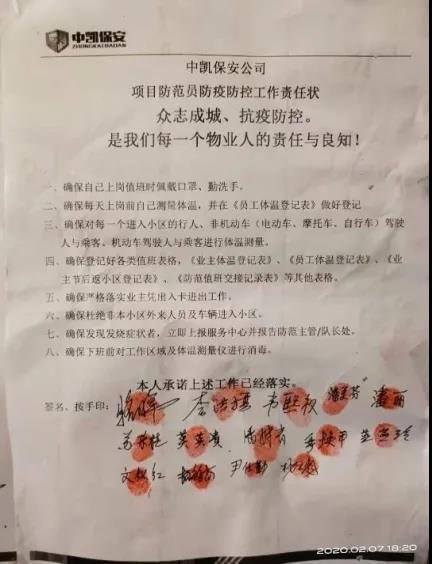 中凯保安
ZHONGKAIBAOAN
中凯保安公司
项目防范员防疫防控工作责任状
众志成城、抗疫防控。
是我们每一个物业人的责任与良知！
一、确保自己上岗值班时佩戴口罩、勤洗手。
二、确保每天上岗前自己测量体温，并在《员工体温登记表》做好登记
三、确保对每一个进入小区的行人、非机动车（电动车、摩托车、自行车）驾驶
人与乘客、机动车驾驶人与乘客进行体温测量。
四、确保登记好各类值班表格，《业主体温登记表》、《员工体温登记表》、《业
主节后返小区登记表》、《防范值班交接记录表》等其他表格。
五、确保严格落实业主凭出入卡进出工作。
六、确保杜绝非本小区外来人员及车辆进入小区。
七、确保发现发烧症状者，立即上报服务中心并报告防范主管/队长处。
八、确保下班前对工作区域及体温测量仪进行消毒。
本人承诺上述工作已经落实。
签名、按手印：
2020.02.07 18:20